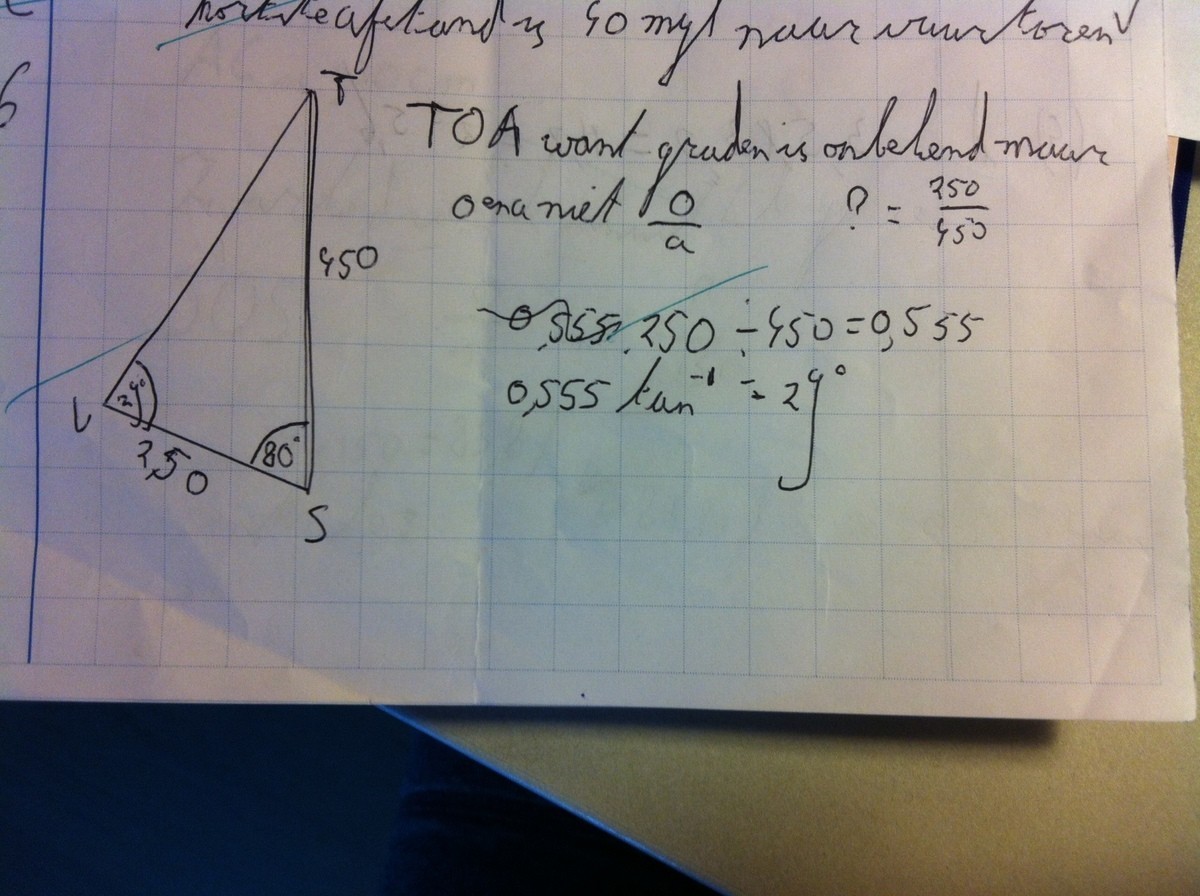 kortste afstand is 40 mijl naar vuurtoren
6
T
TOA want graden is onbekend maar
o en a niet o/a ? = 250/450
450
0,555 250 ÷ 450 = 0,555
0,555 tan⁻¹ = 29°
V 29°
250 80°
S